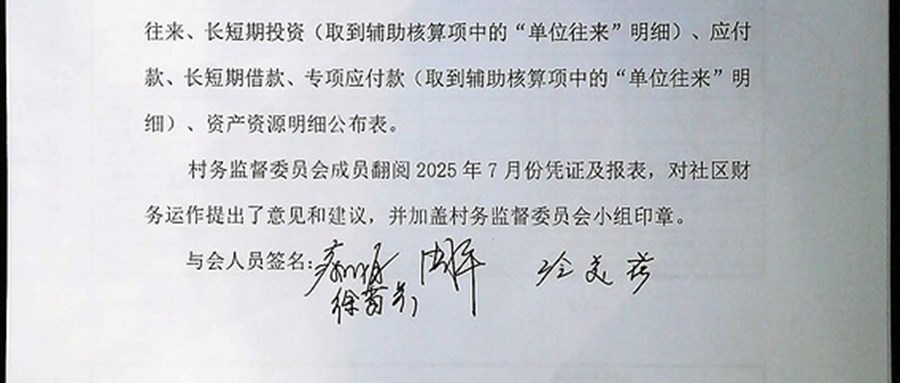 往来、长短期投资（取到辅助核算项中的“单位往来”明细）、应付
款、长短期借款、专项应付款（取到辅助核算项中的“单位往来”明
细）、资产资源明细公布表。
村务监督委员会成员翻阅 2025 年 7 月份凭证及报表，对社区财
务运作提出了意见和建议，并加盖村务监督委员会小组印章。
与会人员签名：